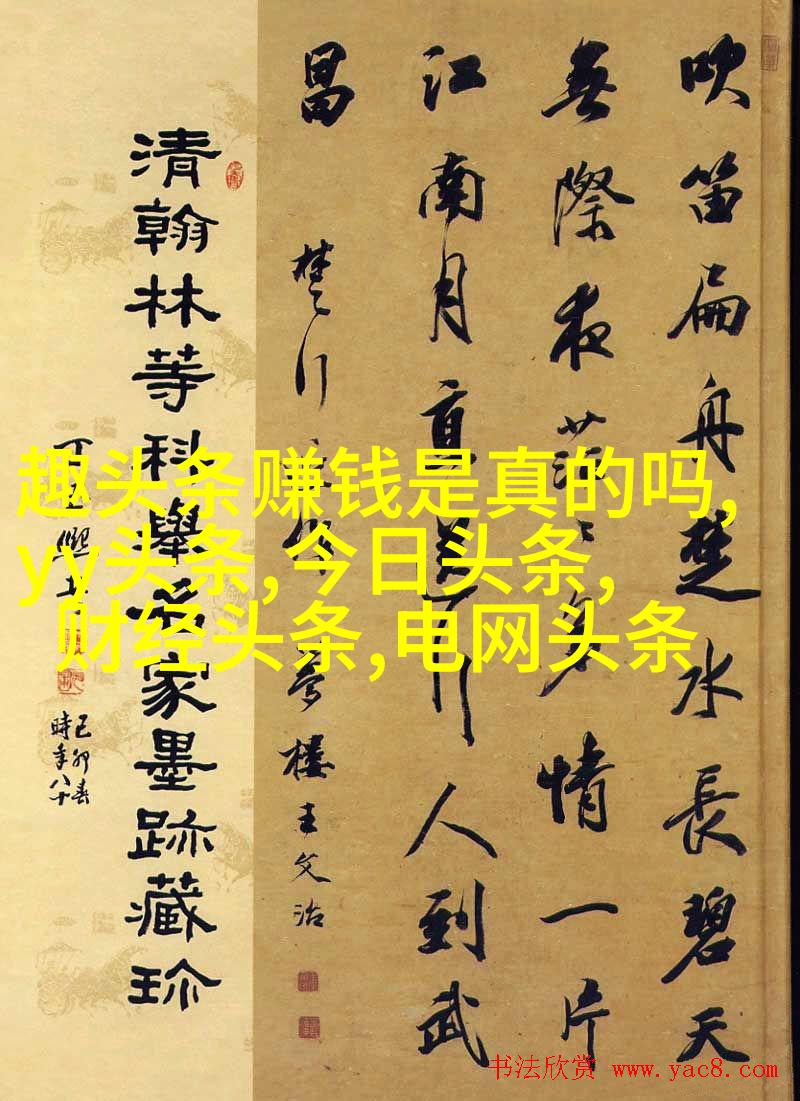 吹笛扁舟楚水長碧天
無際夜茫〻多情一片
江南月直送行人到武
昌
楚行 夢樓王文治
清翰林等科舉名家墨跡藏珍
己卯春
時年八十
趣头条赚钱是真的吗,
yy头条,今日头条,
财经头条,电网头条
书法欣赏 www.yac8.com